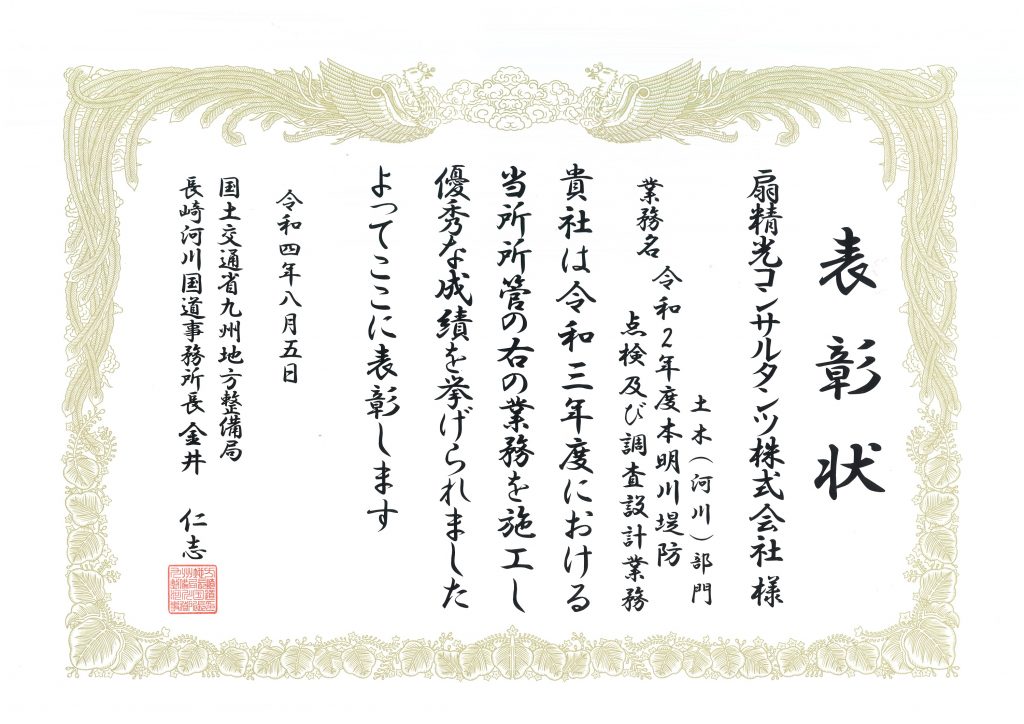 表彰状
扇精光コンサルタンツ株式会社 様
土木（河川）部門
業務名 令和2年度本明川堤防
点検及び調査設計業務
貴社は令和三年度における
当所所管の右の業務を施工し
優秀な成績を挙げられました
よってここに表彰します
令和四年八月五日
国土交通省九州地方整備局
長崎河川国道事務所長 金井 仁志